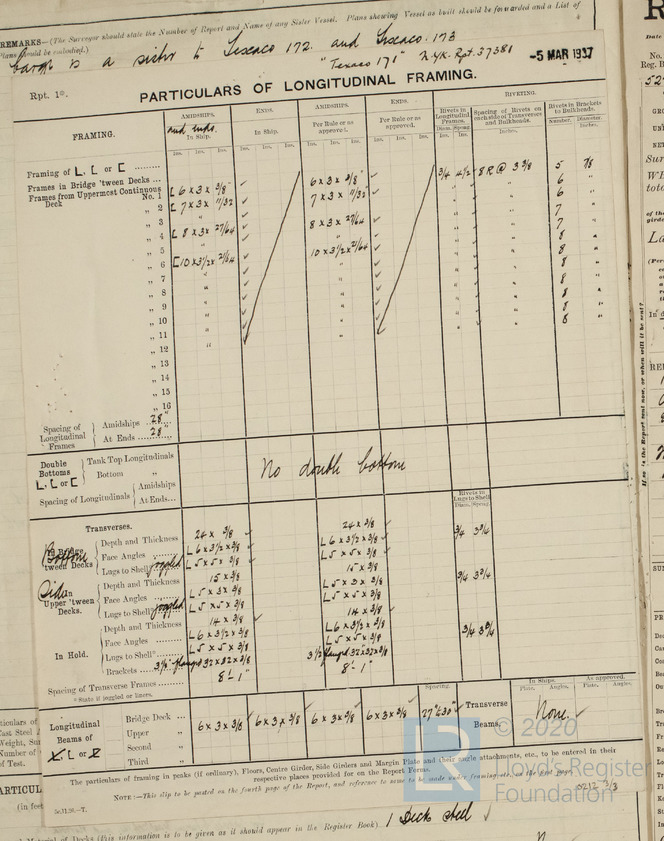 REMARKS—(The Surveyor should state the Number of Report and Name of any Sister Vessel. Plans showing Vessel as built should be forwarded and a List of
Plans should be embodied.)
barge is a sister to Texaco 172. and Texaco. 173
"Texaco 171" N.Yk. Rpt. 37381
-5 MAR 1937
Rpt. 1*.
PARTICULARS OF LONGITUDINAL FRAMING.
FRAMING.
AMIDSHIPS. and ends. In Ship.
ENDS. In Ship.
AMIDSHIPS. Per Rule or as approved.
ENDS. Per Rule or as approved.
RIVETING.
Rivets in Longitudinal Frames. Diam. Spcng.
Spacing of Rivets on each side of Transverses and Bulkheads. Inches.
Rivets in Brackets to Bulkheads. Number. Diameter Inches.
Ins. Ins. Ins. Ins. Ins. Ins. Ins. Ins. Ins. Ins. Ins. Ins.
Framing of L, L or [ 3/4 4 1/2 8 R @ 3 3/8 5 7/8
Frames in Bridge 'tween Decks ... L 6 x 3 x 3/8 6 x 3 x 3/8 6
Frames from Uppermost Continuous Deck No. 1 [ 7 x 3 x 11/32 7 x 3 x 11/32 6
„ 2 7
„ 3 [ 8 x 3 x 27/64 8 x 3 x 27/64 7
„ 4 8
„ 5 [10 x 3 1/2 x 21/64 10 x 3 1/2 x 21/64 8
„ 6 8
„ 7 8
„ 8 8
„ 9 8
„ 10 8
„ 11
„ 12
„ 13
„ 14
„ 15
„ 16
Spacing of Longitudinal Frames
Amidships 28"
At Ends 28"
Double Bottoms L, L or [
Tank Top Longitudinals
Bottom „
No double bottom
Spacing of Longitudinals Amidships
At Ends...
Rivets in Lugs to Shell. Diam. Spcng.
Transverses.
In Bridge 'tween Decks Bottom
Depth and Thickness 24 x 3/8 24 x 3/8 3/4 3 3/4
Face Angles L 6 x 3 1/2 x 3/8 L 6 x 3 1/2 x 3/8
Lugs to Shell* joggled L 5 x 5 x 3/8 L 5 x 5 x 3/8
In Upper 'tween Decks. Side
Depth and Thickness 15 x 3/8 15 x 3/8 3/4 3 3/4
Face Angles L 5 x 3 x 3/8 L 5 x 3 x 3/8
Lugs to Shell* joggled L 5 x 5 x 3/8 L 5 x 5 x 3/8
In Hold.
Depth and Thickness 14 x 3/8 14 x 3/8
Face Angles L 6 x 3 1/2 x 3/8 L 6 x 3 1/2 x 3/8 3/4 3 3/4
Lugs to Shell* L 5 x 5 x 3/8 L 5 x 5 x 3/8
Brackets 3 1/2" flanged 32 x 32 x 3/8 3 1/2 flanged 32 x 32 x 3/8
Spacing of Transverse Frames 8'- 1" 8'- 1"
* State if joggled or liners.
Spacing.
In Ships. Plate. Angles.
As approved. Plate. Angles.
Longitudinal Beams of [, L or L
Bridge Deck ... 6 x 3 x 3/8 6 x 3 x 3/8 6 x 3 x 3/8 6 x 3 x 3/8 27" & 30"
Upper „
Second „
Third „
Transverse Beams.
None.
The particulars of framing in peaks (if ordinary), Floors, Centre Girder, Side Girders and Margin Plate and their angle attachments, etc., to be entered in their
respective places provided for on the Report Forms.
NOTE:—This slip to be pasted on the fourth page of the Report, and reference to some to be made under framing etc. on the first page.
0212 3/3
© 2020
LR
Lloyd's Register
Foundation
(this information is to be given as it should appear in the Register Book) 1 Deck steel